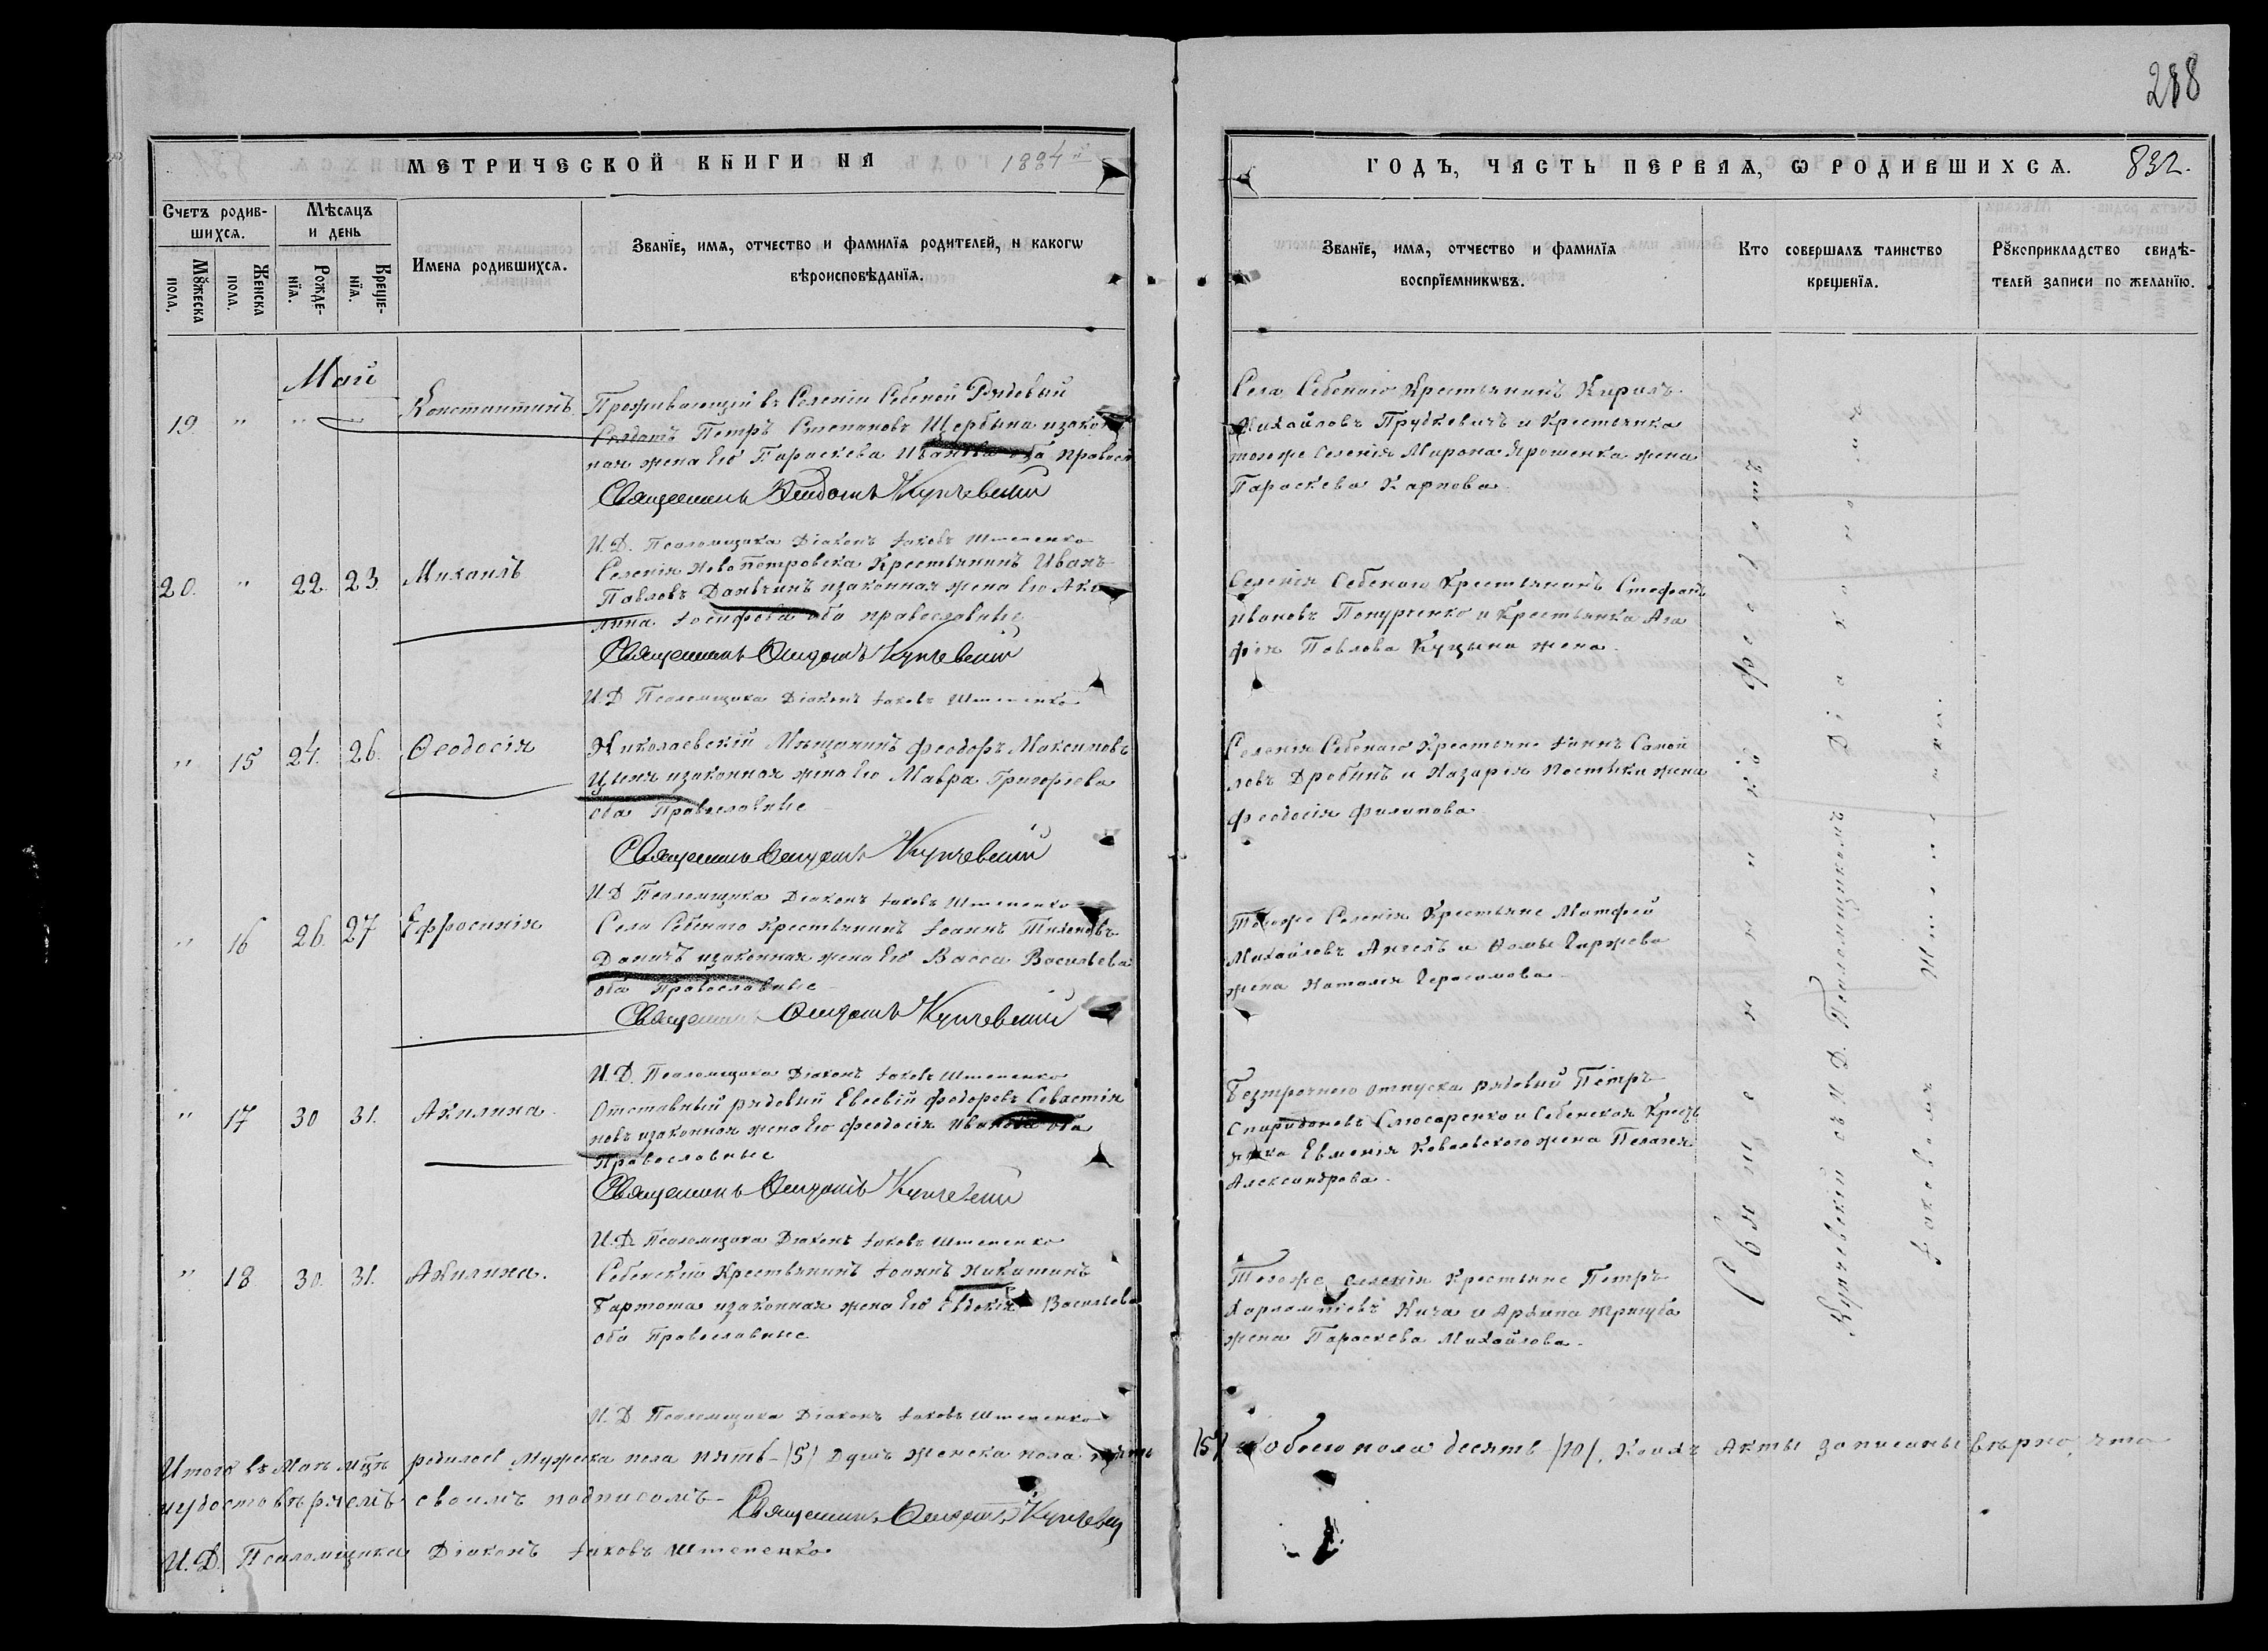 288
МЕТРИЧЕСКОЙ КНИГИ НА 1884 й
ГОДЪ, ЧАСТЬ ПЕРВАЯ, Ѡ РОДИВШИХСѦ. 832.
Счетъ родив-
шихсѧ.
Мꙋжеска
пола.
Женска
пола.
Мѣсѧцъ
и день
Рожде-
нїѧ.
Креще-
нїѧ.
Имена родившихсѧ.
Званїе, имѧ, отчество и фамилїѧ родителей, и какогѡ
вѣроисповѣданїѧ.
Званїе, имѧ, отчество и фамилїѧ
воспрїемникѡвъ.
Кто совершалъ таинство
крещенїѧ.
Рꙋкоприкладство свидѣ-
телей записи по желанїю.
Май
19. " " " Константинъ
Проживающій въ Селеніи Себеной Рядовый
Солдатъ Петръ Щербына изакон
ная жена Его Параскева Иванова оба правосл
Священникъ Купчевскій
И. Д. Псаломщика Діаконъ Іаковъ Штепенко
Села Себенаго Крестьянинъ Кирилъ
Михайловъ Прудкевичъ и Крестьянка
тогоже Селенія Мирона Ярошенка жена
Параскева Карпова
20. " 22. 23. Михаилъ
Селенія Новопетровска Крестьянинъ Иванъ
Павловъ изаконная жена Его Аки
лина Іосифова оба православные
Священникъ Купчевскій
И. Д Псаломщика Діаконъ Іаковъ Штепенко
Селенія Себенаго Крестьянинъ Стефанъ
Ивановъ и Крестьянка Ага
фія Павлова Куцына жена.
" 15 24. 26. Ѳеодосія
Николаевскій Мѣщанинъ Феодоръ Максимовъ
изаконная жена Его Мавра Григорьева
оба Православные
Священникъ Купчевскій
И Д Псаломщика Діаконъ Іаковъ Штепенко
Селенія Себенаго Крестьяне Іоаннъ Самой
ловъ Дробинъ и Назарія жена
Феодосія Филипова
" 16 26. 27 Ефросинія
Села Себенаго Крестьянинъ Іоаннъ Тихоновъ
изаконная жена Его Васса Васильева
оба Православные
Священникъ Купчевскій
И. Д. Псаломщика Діаконъ Іаковъ Штепенко
Тогоже Селенія Крестьяне Матфей
Михайловъ и Ѳомы жена
Наталія Герасимова
" 17 30 31. Акилина
Отставный рядовый Евсевій Федоровъ Севастія
новъ изаконная жена Его Феодосія Иванова оба
Православные
Священникъ Купчевскій
И. Д. Псаломщика Діаконъ Іаковъ Штепенко
Безсрочнаго отпуска рядовый Петръ
Спиридоновъ Слюсаренко и Себенская Кресть
янка Евменія Ковальского жена Пелагея
Александрова.
" 18 30. 31. Акилина.
Себенскій Крестьянинъ Іоаннъ Никитинъ
изаконная жена Его Евдокія Васильева
оба Православные
И. Д Псаломщика Діаконъ Іаковъ Штепенко
Тогоже Селенія Крестьяне Петръ
Харлампіевъ Кича и Архипа Тригуба
жена Параскева Михайлова.
Священникъ Ѳеодотъ
Купчевскій съ И. Д. Псаломщикомъ Діакономъ
Іаковомъ Штепенкою.
Итого въ Маѣ м҃цѣ родилось Мужеска пола пять (5) Душъ женска пола пять (5) Обоего пола десять (10), Коихъ Акты записаны вѣрно, что
иудостовѣряемъ своимъ подписомъ
Священникъ Купчевскій
И. Д. Псаломщика Діаконъ Іаковъ Штепенко